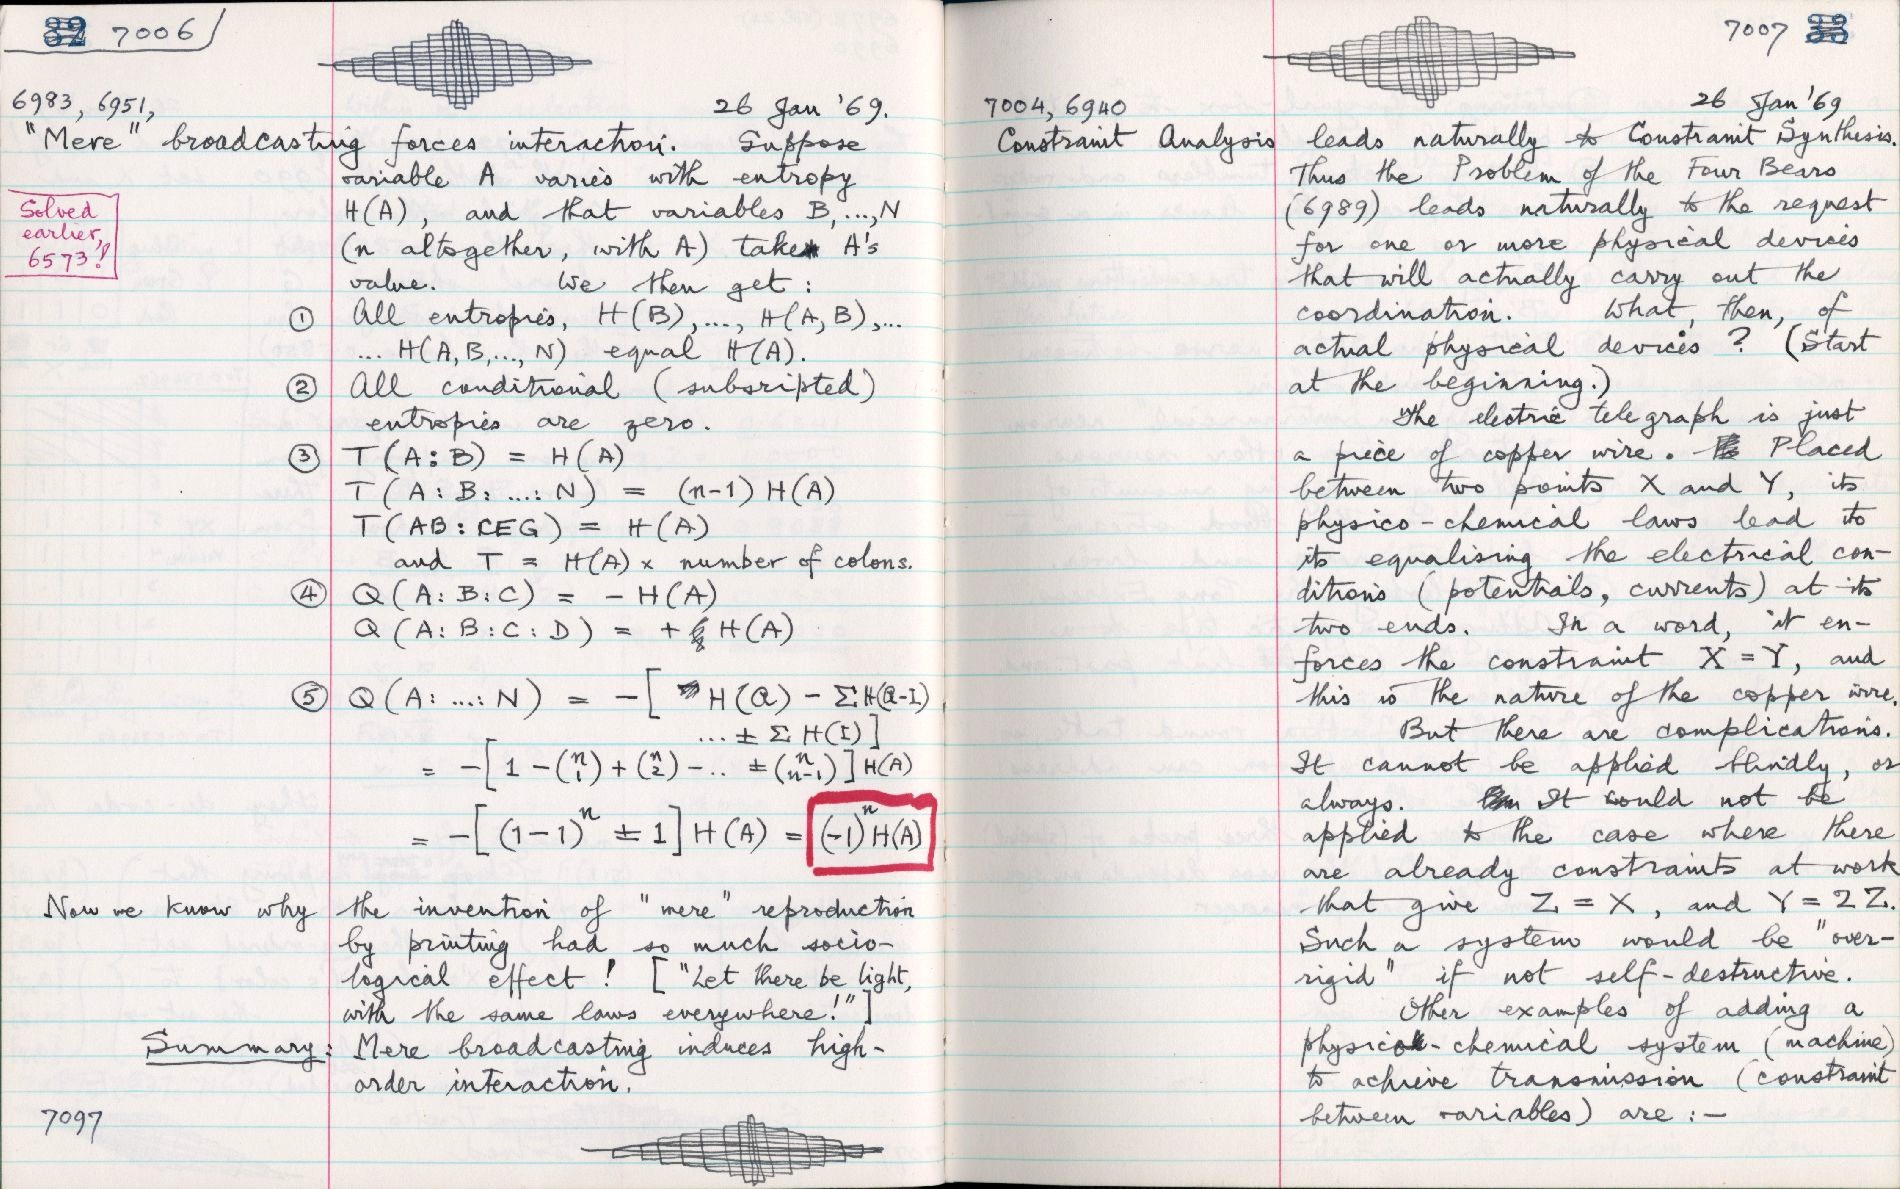 32 7006
6983, 6951,
26 Jan '69.
"Mere" broadcasting forces interaction. Suppose
variable A varies with entropy
H(A), and that variables B,...,N
(n altogether, with A) take A's
value. We then get:
Solved
earlier,
6573!
① All entropies, H(B),..., H(A,B),...
... H(A,B,...,N) equal H(A).
② All conditional (subscripted)
entropies are zero.
③ T(A:B) = H(A)
T(A:B:...:N) = (n-1) H(A)
T(AB:CEG) = H(A)
and T = H(A) × number of colons.
④ Q(A:B:C) = - H(A)
Q(A:B:C:D) = + H(A)
⑤ Q(A:...:N) = -[ H(Q) - ΣH(Q-I)
... ± Σ H(I)]
= -[1 - (n 1) + (n 2) - .. ± (n n-1)] H(A)
= -[(1-1)^n ± 1] H(A) = (-1)^n H(A)
Now we know why the invention of "mere" reproduction
by printing had so much socio-
logical effect! ["Let there be light,
with the same laws everywhere!"]
Summary: Mere broadcasting induces high-
order interaction.
7097
7007 33
7004, 6940
26 Jan '69
Constraint Analysis leads naturally to Constraint Synthesis.
Thus the Problem of the Four Bears
(6989) leads naturally to the request
for one or more physical devices
that will actually carry out the
coordination. What, then, of
actual physical devices? (Start
at the beginning.)
The electric telegraph is just
a piece of copper wire. Placed
between two points X and Y, its
physico-chemical laws lead to
its equalising the electrical con-
ditions (potentials, currents) at its
two ends. In a word, it en-
forces the constraint X = Y, and
this is the nature of the copper wire.
But there are complications.
It cannot be applied blindly, or
always. It could not be
applied to the case where there
are already constraints at work
that give Z = X, and Y = 2Z.
Such a system would be "over-
rigid" if not self-destructive.
Other examples of adding a
physico-chemical system (machine)
to achieve transmission (constraint
between variables) are :-